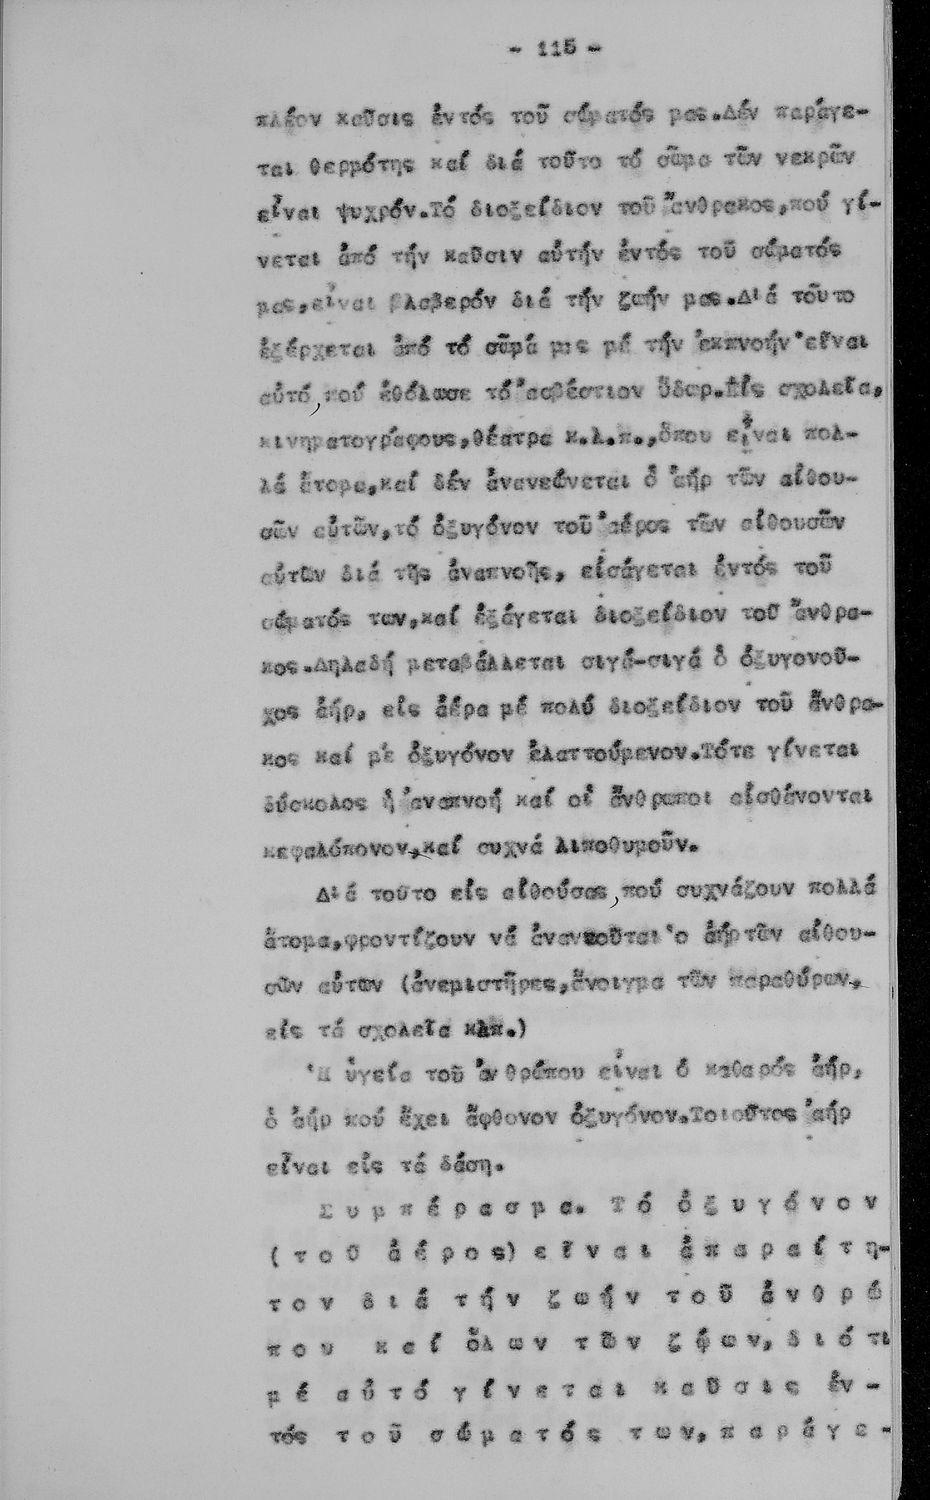 - 115 -
πλέον καῦσις ἐντός τοῦ σώματός μας.Δέν παράγε-
ται θερμότης καί διά τοῦτο τό σῶμα τῶν νεκρῶν
εἶναι ψυχρόν.Τό διοξείδιον τοῦ ἄνθρακος,πού γί-
νεται ἀπό τήν καῦσιν αὐτήν ἐντός τοῦ σώματός
μας,εἶναι βλαβερόν διά τήν ζωήν μας.Διά τοῦτο
ἐξέρχεται ἀπό τό σῶμά μας μέ τήν ἐκπνοήν·εἶναι
αὐτό,πού ἐθόλωσε τό ἀσβέστιον ὕδωρ.Εἰς σχολεῖα,
κινηματογράφους,θέατρα κ.λ.π.,ὅπου εἶναι πολ-
λά ἄτομα,καί δέν ἀνανεώνεται ὁ ἀήρ τῶν αἰθου-
σῶν αὐτῶν,τό ὀξυγόνον τοῦ ἀέρος τῶν αἰθουσῶν
αὐτῶν διά τῆς ἀναπνοῆς, εἰσάγεται ἐντός τοῦ
σώματός των,καί ἐξάγεται διοξείδιον τοῦ ἄνθρα-
κος.Δηλαδή μεταβάλλεται σιγά-σιγά ὁ ὀξυγονοῦ-
χος ἀήρ, εἰς ἀέρα μέ πολύ διοξείδιον τοῦ ἄνθρα-
κος καί μέ ὀξυγόνον ἐλαττούμενον.Τότε γίνεται
δύσκολος ἡ ἀναπνοή καί οἱ ἄνθρωποι αἰσθάνονται
κεφαλόπονον,καί συχνά λιποθυμοῦν.
Διά τοῦτο εἰς αἰθούσας,πού συχνάζουν πολλά
ἄτομα,φροντίζουν νά ἀνανεοῦται ὁ ἀήρ τῶν αἰθου-
σῶν αὐτῶν (ἀνεμιστῆρες,ἄνοιγμα τῶν παραθύρων,
εἰς τά σχολεῖα κλπ.)
Ἡ ὑγεία τοῦ ἀνθρώπου εἶναι ὁ καθαρός ἀήρ,
ὁ ἀήρ πού ἔχει ἄφθονον ὀξυγόνον.Τοιοῦτος ἀήρ
εἶναι εἰς τά δάση.
Σ υ μ π έ ρ α σ μ α. Τ ό ὀ ξ υ γ ό ν ο ν
( τ ο ῦ ἀ έ ρ ο ς) ε ἶ ν α ι ἀ π α ρ α ί τ η-
τ ο ν δ ι ά τ ή ν ζ ω ή ν τ ο ῦ ἀ ν θ ρ ώ
π ο υ κ α ί ὅλ ω ν τ ῶ ν ζ ῴ ω ν, δ ι ό τι
μ έ α ὐ τ ό γ ί ν ε τ α ι κ α ῦ σ ι ς ἐν -
τός τ ο ῦ σ ώ μ α τ ό ς τ ω ν, π α ρ ά γ ε -